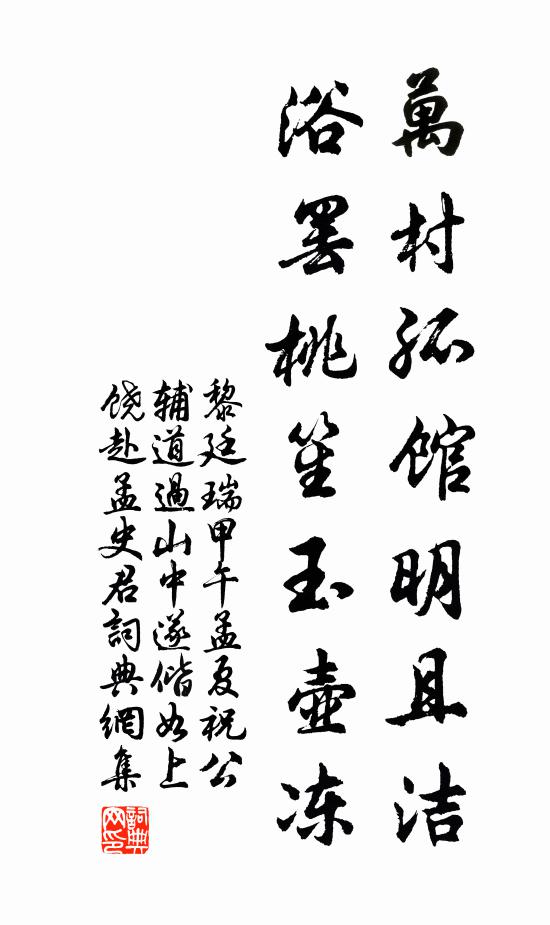 萬村孤馆明且洁
浴罢桃笙玉壶冻
黎廷瑞甲午孟夏祝公
辅道過山中遂偕如上
饶赴孟史君詞典網集
詞典
网印